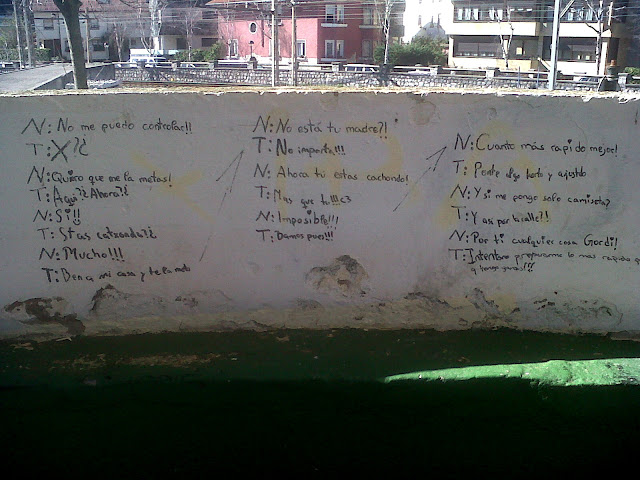 N: No me puedo controlar!!
T: X?¿
N: Quiero que me la metas!
T: Aquí?¿Ahora?¿
N: Sí!!
T: Stas catxonda?¿
N: Mucho!!!
T: Ben a mi casa y te la meto
N: No está tu madre?!
T: No importa!!!
N: Ahora tú estas cachondo!
T: Mas que tu!!!<3
N: Imposible!!!
T: Damos pues!!!
N: Cuanto más rapido mejor!
T: Ponte algo corto y ajustado
N: Y si me pongo solo camiseta?
T: Y asi por la calle?!
N: Por ti cualquier cosa Gordi!
T: Intentare prepararme lo mas rapido q
a tener ganas!!!